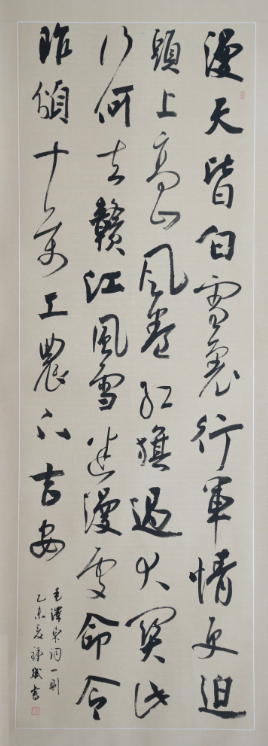 漫天皆白雪裏行軍情更迫
頭上高山風卷紅旗過大關此
行何去贛江風雪迷漫處命令
昨頒十萬工農下吉安
毛澤東詞一則
乙未夏書